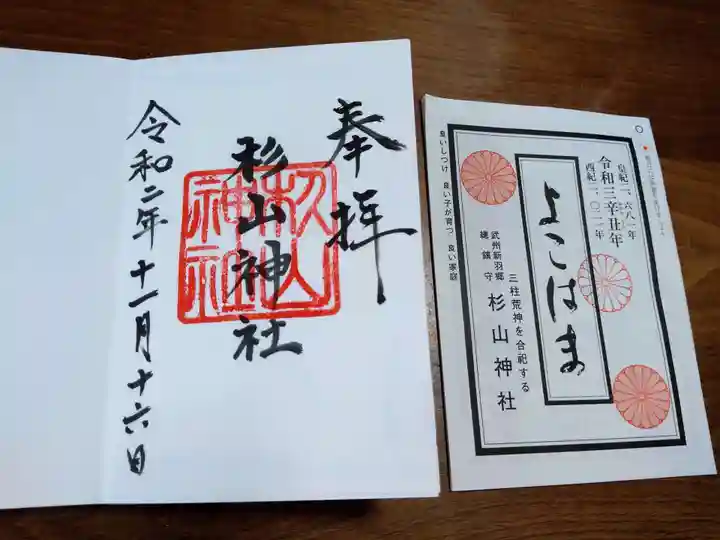 奉拝
杉山神社
杉山
神社
令和二年十一月十六日
皇紀二、六八一年
令和三辛丑年
西紀二、〇二一年
よこはま
三柱荒神を合祀する
武州新羽郷
総鎮守
杉山神社
良いしつけ 良い子が育つ 良い家庭